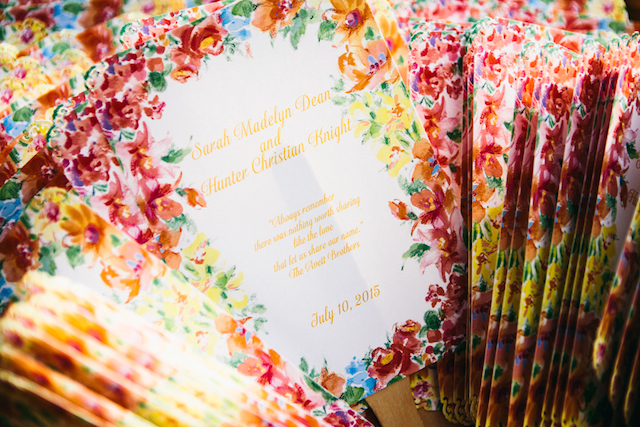 Sarah Madelyn Dean
and
Hunter Christian Knight
"Always remember
there was nothing worth sharing
like the love
that let us share our name."
The Avett Brothers
July 10, 2015